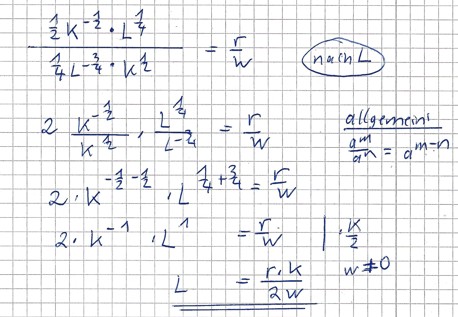 (½ K^(-½) · L^(¼)) / (¼ L^(-¾) · K^(½)) = r/w    nach L
2 K^(-½)/K^(½) · L^(¼)/L^(-¾) = r/w    allgemein:
a^m/a^n = a^(m-n)
2 · K^(-½-½) · L^(¼+¾) = r/w
2 · K^(-1) · L^1 = r/w | · K/2
w ≠ 0
L = r · K / 2w